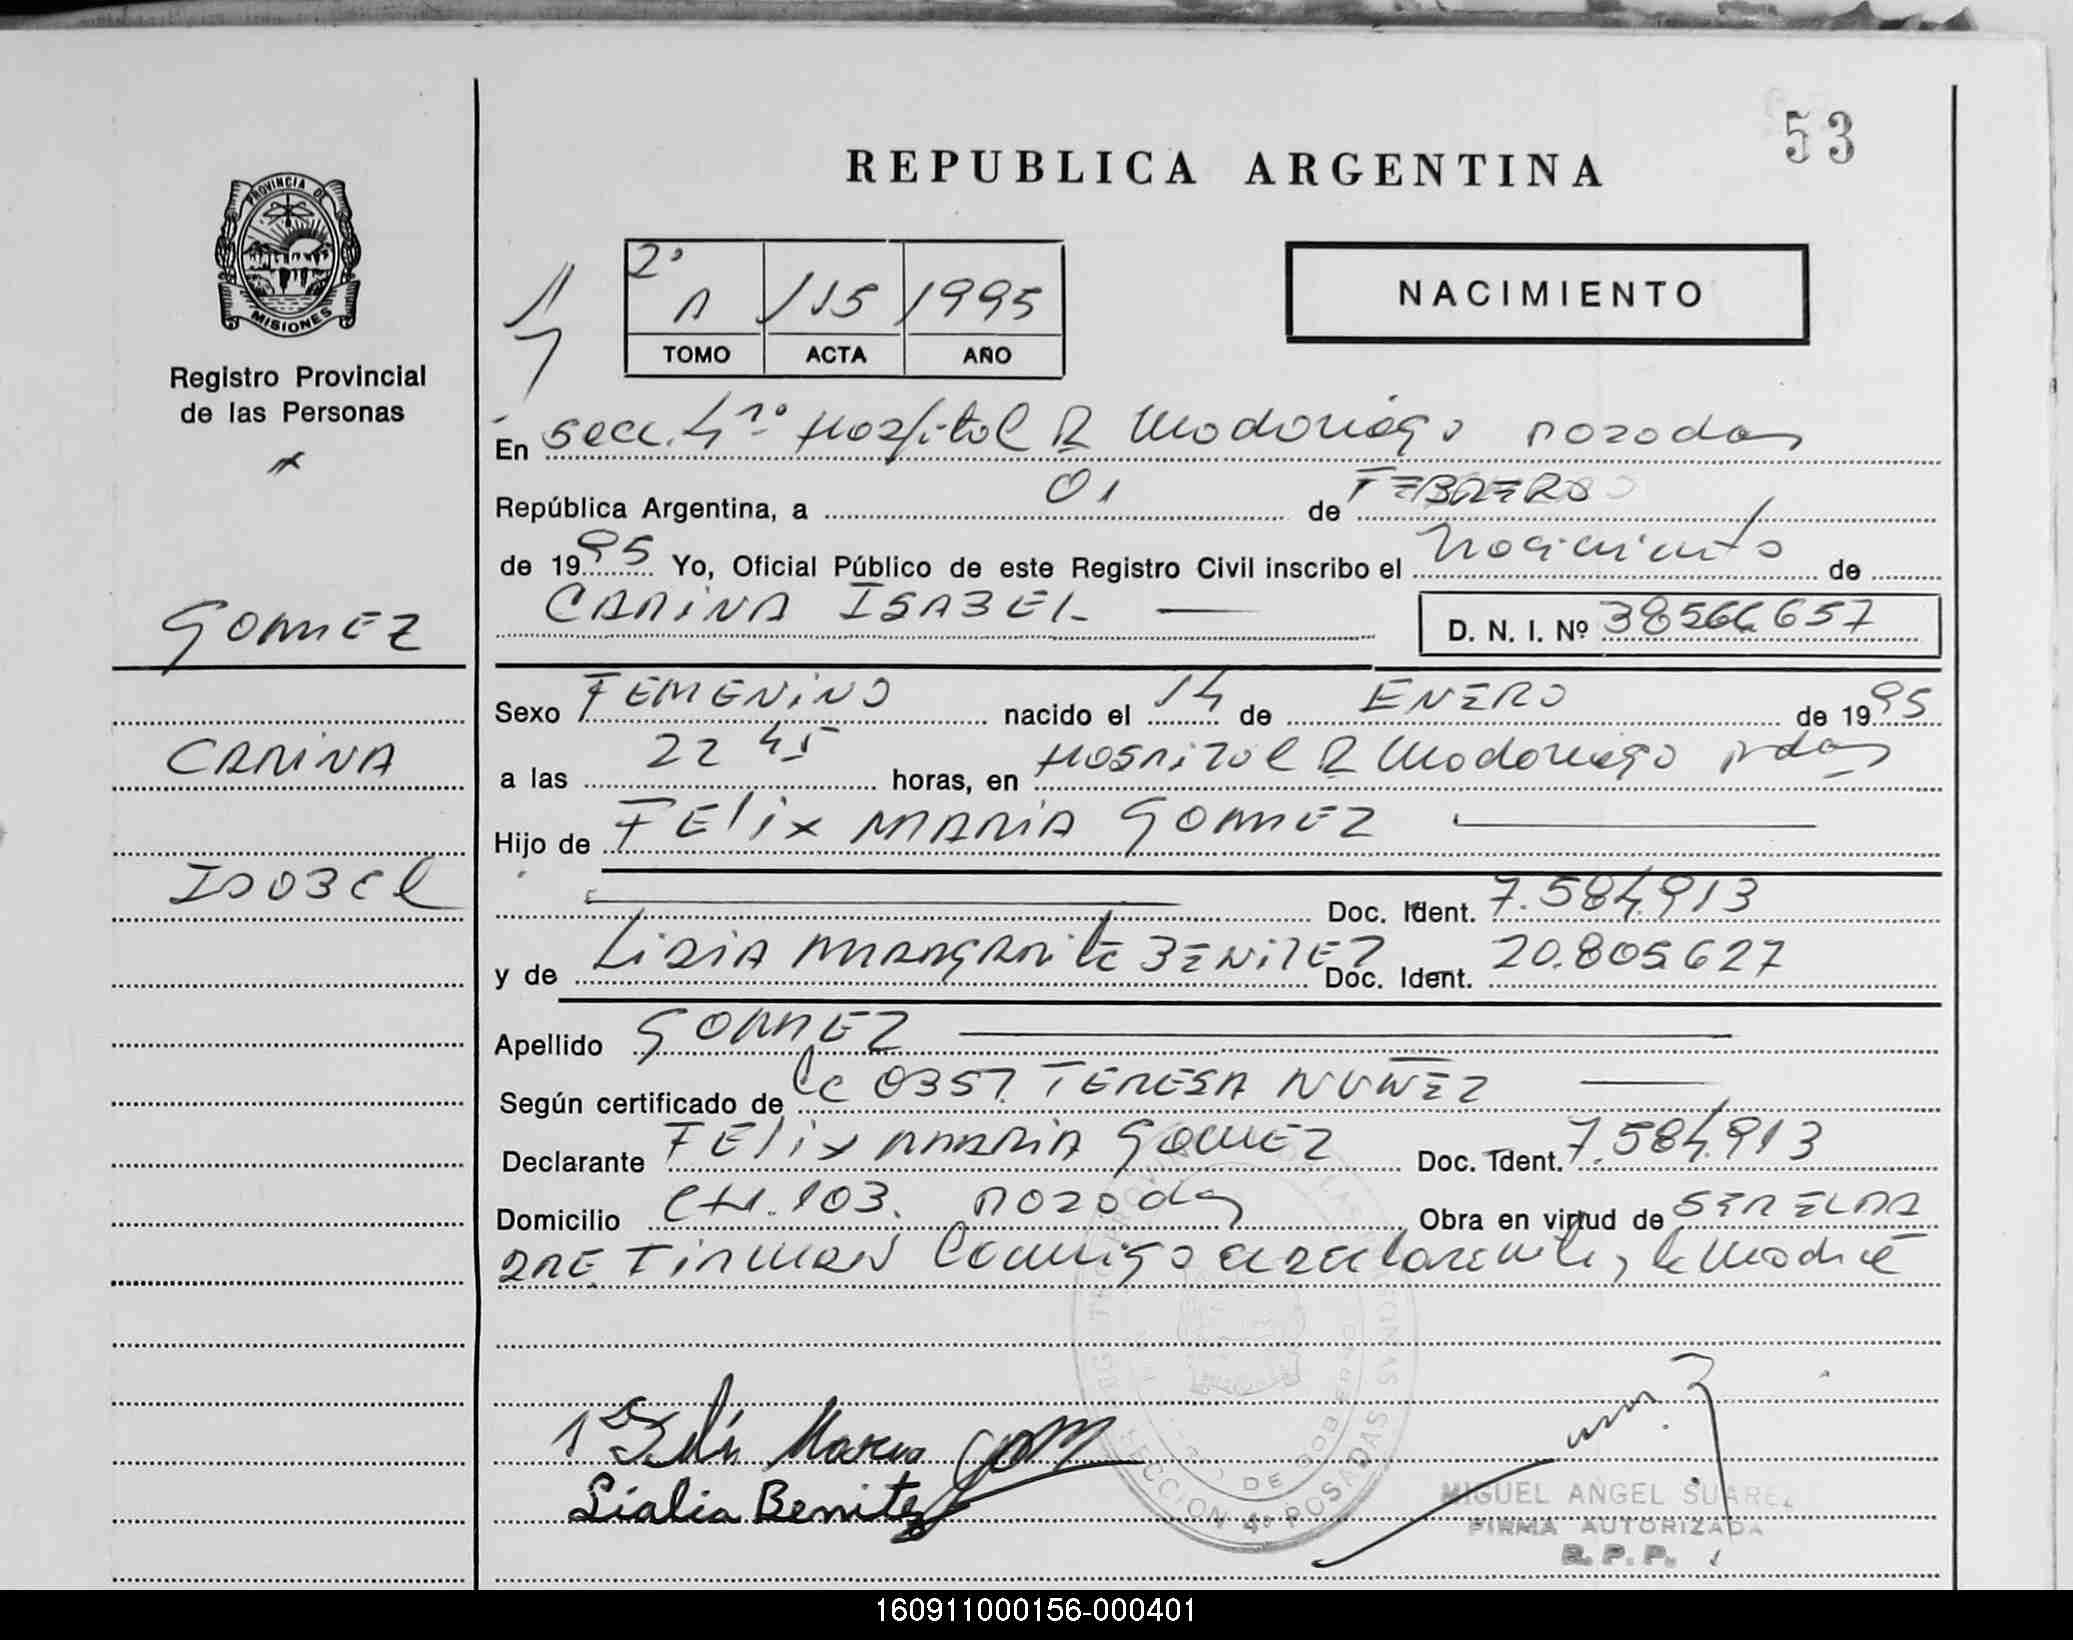 53
REPUBLICA ARGENTINA
PROVINCIA DE
MISIONES
Registro Provincial
de las Personas
2º
A 115 1995
TOMO ACTA AÑO
NACIMIENTO
En Secc. 4º Hospital R Madariaga Posadas
República Argentina, a 01 de FEBRERO
de 1995 Yo, Oficial Público de este Registro Civil inscribo el Nacimiento de
CARINA ISABEL
D. N. I. Nº 38566657
GOMEZ
CARINA
ISABEL
Sexo FEMENINO nacido el 14 de ENERO de 1995
a las 22 45 horas, en HOSPITAL R Madariaga Pdas
Hijo de FELIX MARIA GOMEZ
Doc. Ident. 7.584.913
y de MARGARITA BENITEZ Doc. Ident. 20.805.627
Apellido GOMEZ
Según certificado de 0357 TERESA NUÑEZ
Declarante FELIX MARIA GOMEZ Doc. Ident. 7.584.913
Domicilio 103. Posadas Obra en virtud de SER EL PA
DRE FIRMAN Conmigo el declarante y la Madre
Maria
Benitez
SECCION 4º POSADAS
MIGUEL ANGEL SUAREZ
FIRMA AUTORIZADA
R. P. P.
160911000156-000401